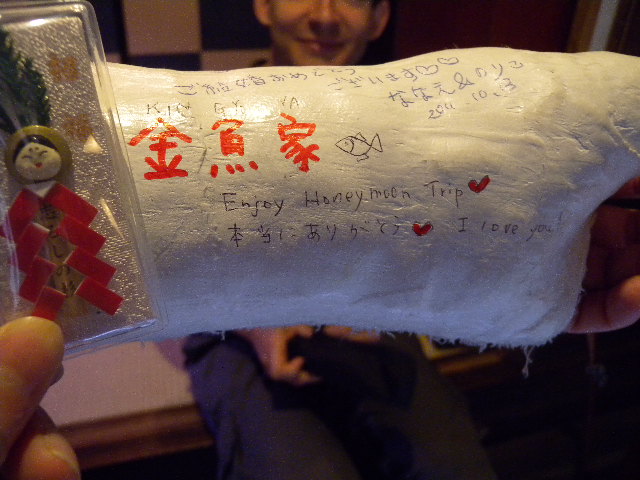 ご結婚おめでとう
ございます♡♡
ななえ&のりこ
2011 10.3
KIN GYO YA
金魚家
Enjoy Honeymoon Trip♥
本当にありがとう♥ I love you!